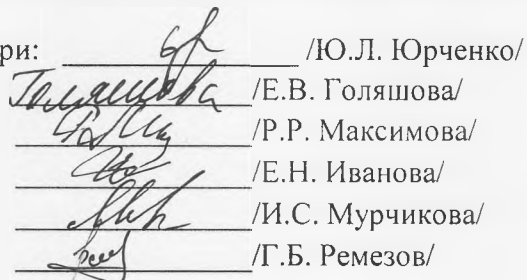 ри: /Ю.Л. Юрченко/
Голяшова /Е.В. Голяшова/
/Р.Р. Максимова/
/Е.Н. Иванова/
/И.С. Мурчикова/
/Г.Б. Ремезов/